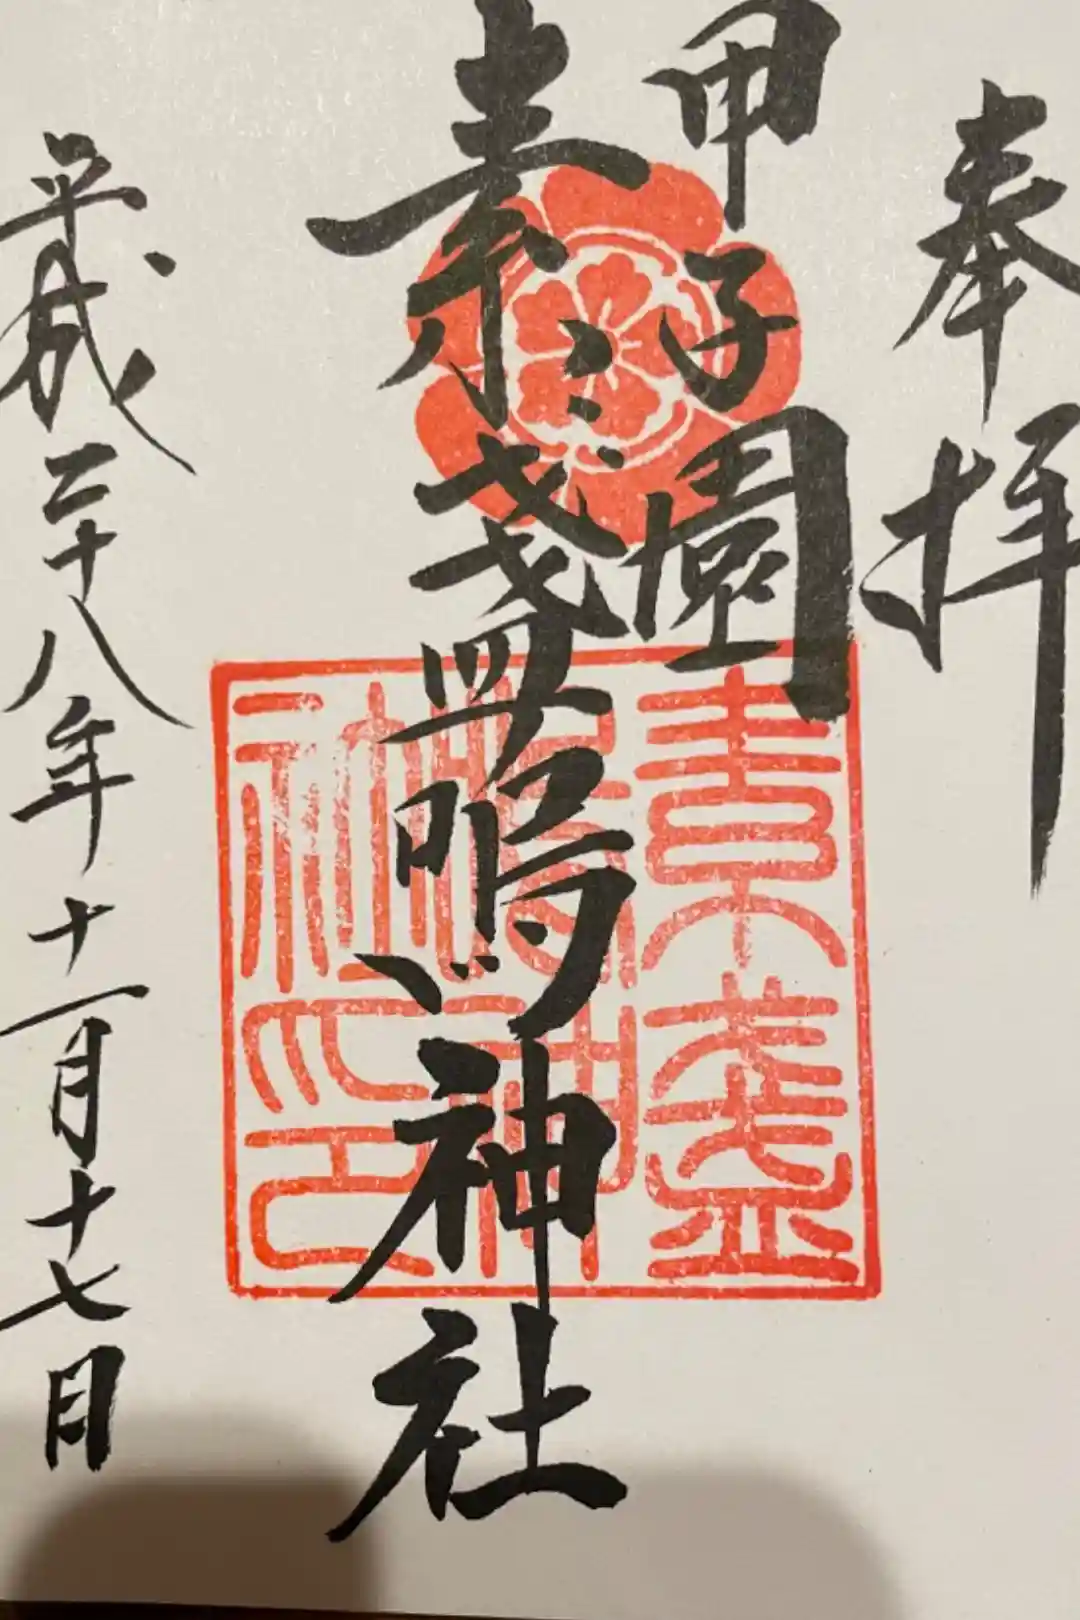 奉拝
甲子園
素盞嗚神社
平成二十八年十一月十七日